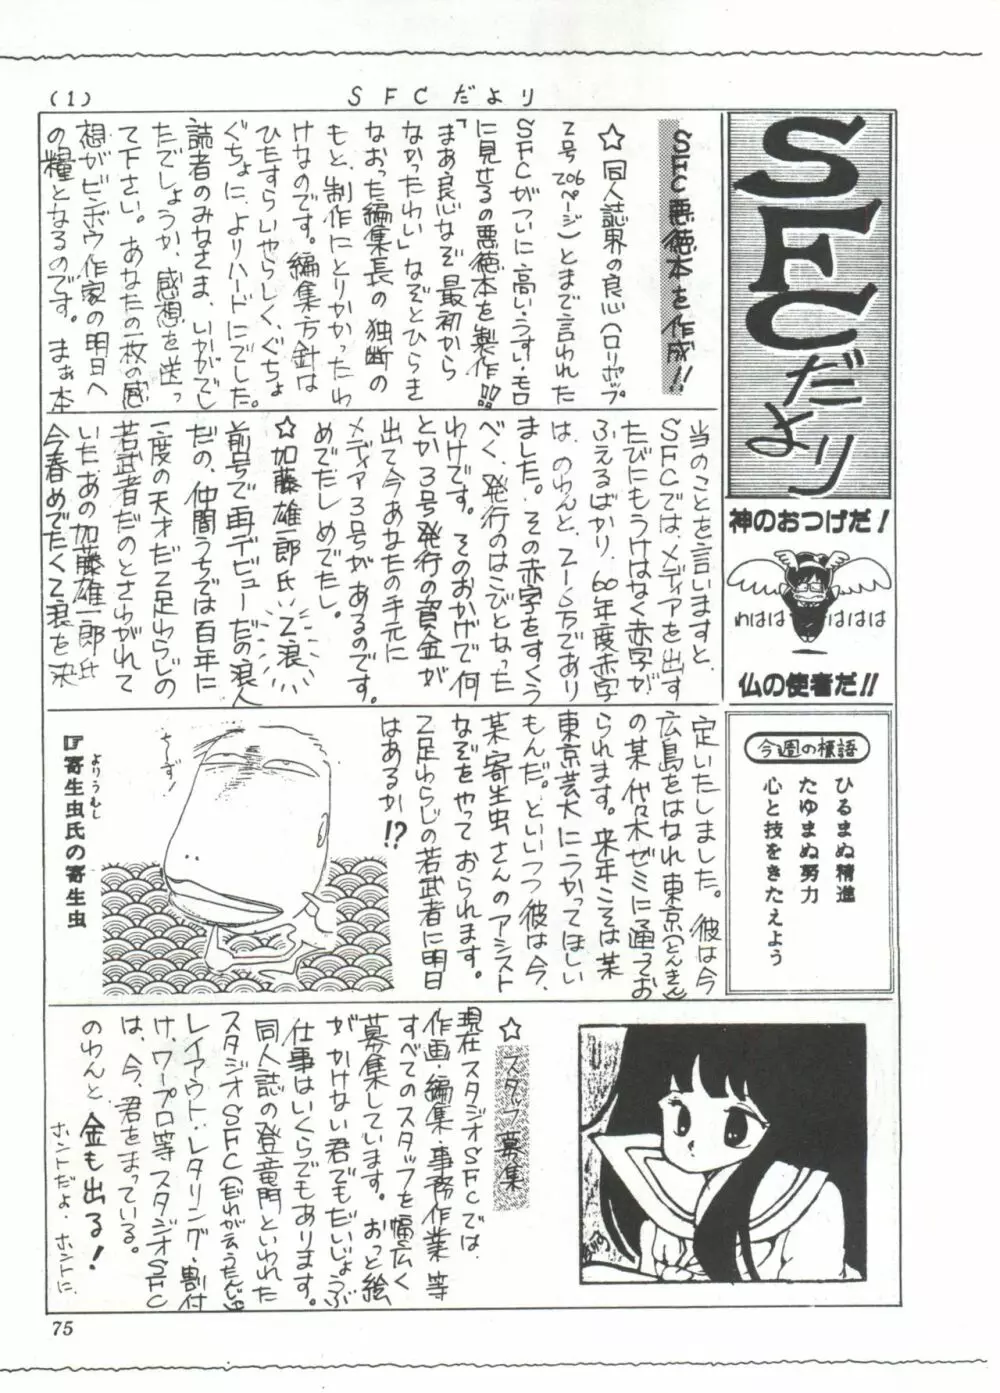 (1)
SFCだより
SFCだより
神のおつげだ!
わはは
はははは
仏の使者だ!!
今週の標語
ひるまぬ精進
たゆまぬ努力
心と技をきたえよう
SFC悪徳本を作成!!
☆同人誌界の良心(ロリポップ
2号206ページ)とまで言われた
SFCがついに高い・うすい・モロ
に見せるの悪徳本を製作!!
「まあ良心なぞ最初から
なかったわい」なぞとひらき
なおった編集長の独断の
もと、制作にとりかかったわ
けなのです。編集方針は
ひたすらいやらしく、ぐちょ
ぐちょに、よりハードにでした。
読者のみなさま、いかがでし
たでしょうか、感想を送っ
て下さい。あなたの一枚の感
想がビンボウ作家の明日へ
の糧となるのです。まぁ本
当のことを言いますと、
SFCでは、メディアを出す
たびにもうけはなく赤字が
ふえるばかり、60年度赤字
は、のわんと、Z-5万であり
ました。その赤字をすくう
べく、発行のはこびとなった
わけです。そのおかげで何
とか3号発行の資金が
出て今あなたの手元に
メディア3号があるのです。
めでたしめでたし。
☆加藤雄一郎氏 乙浪
前号で再デビューだの浪人
だの、仲間うちでは百年に
一度の天才だ乙足わらじの
若武者だのとさわがれて
いたあの加藤雄一郎氏
今春めでたく乙浪を決
定いたしました。彼は今
広島をはなれ東京(とんきん)
の某、代々木ゼミに通ってお
られます。来年こそは某
東京芸大にうかってほしい
もんだ。といいつつ彼は今、
某、寄生虫さんのアシスト
なぞをやっておられます。
乙足わらじの若武者に明日
はあるか!?
ち〜す!
☞寄生虫氏の寄生虫
よりうむし
☆スタッフ募集
現在スタジオSFCでは、
作画・編集・事務作業等
すべてのスタッフを幅広く
募集しています。おっと絵
がかけない君でもだいじょぶ
仕事はいくらでもあります。
同人誌の登竜門といわれた
スタジオSFC(だれが云うたんじゃ
レイアウト・レタリング・割付
け、ワープロ等スタジオSFC
は、今、君をまっている。
のわんと、金も出る!
ホントだよ・ホントに、
75